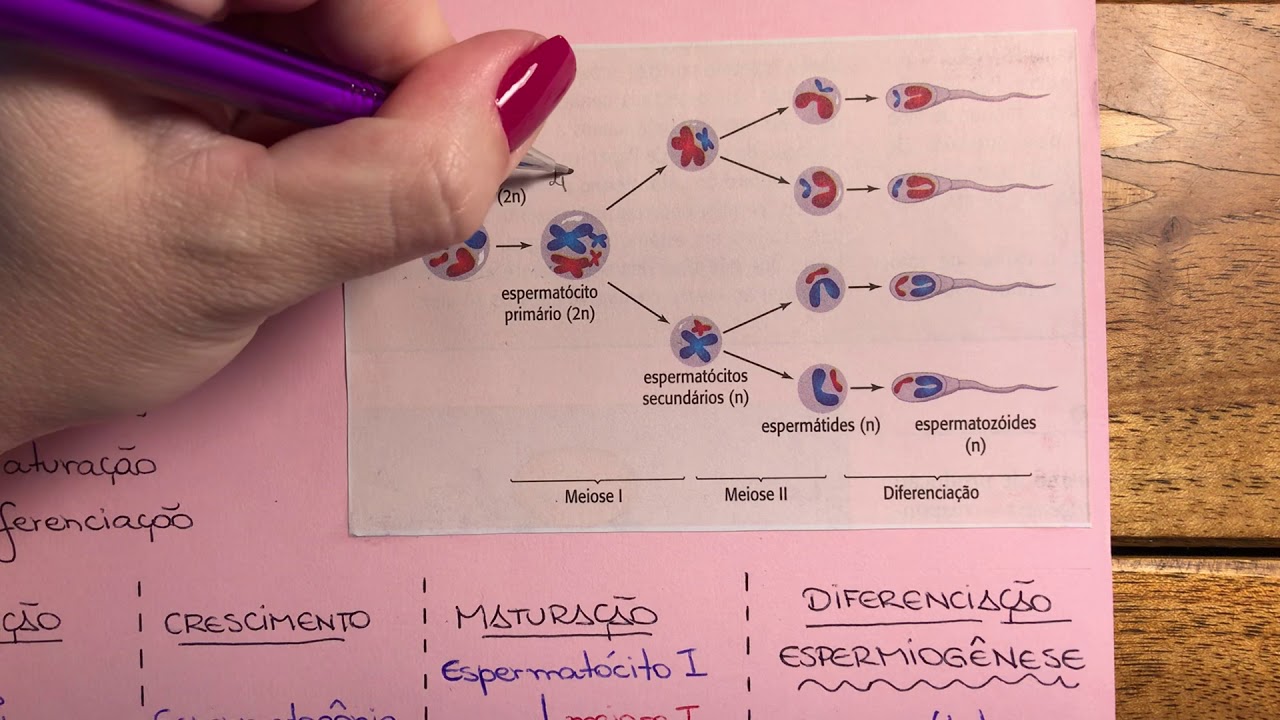 (2n)
espermatócito
primário (2n)
espermatócitos
secundários (n)
espermátides (n)
espermatozóides
(n)
Meiose I
Meiose II
Diferenciação
aturação
ferenciação
ção
CRESCIMENTO
MATURAÇÃO
DIFERENCIAÇÃO
Espermatócito I
ESPERMIOGÊNESE
meiose I